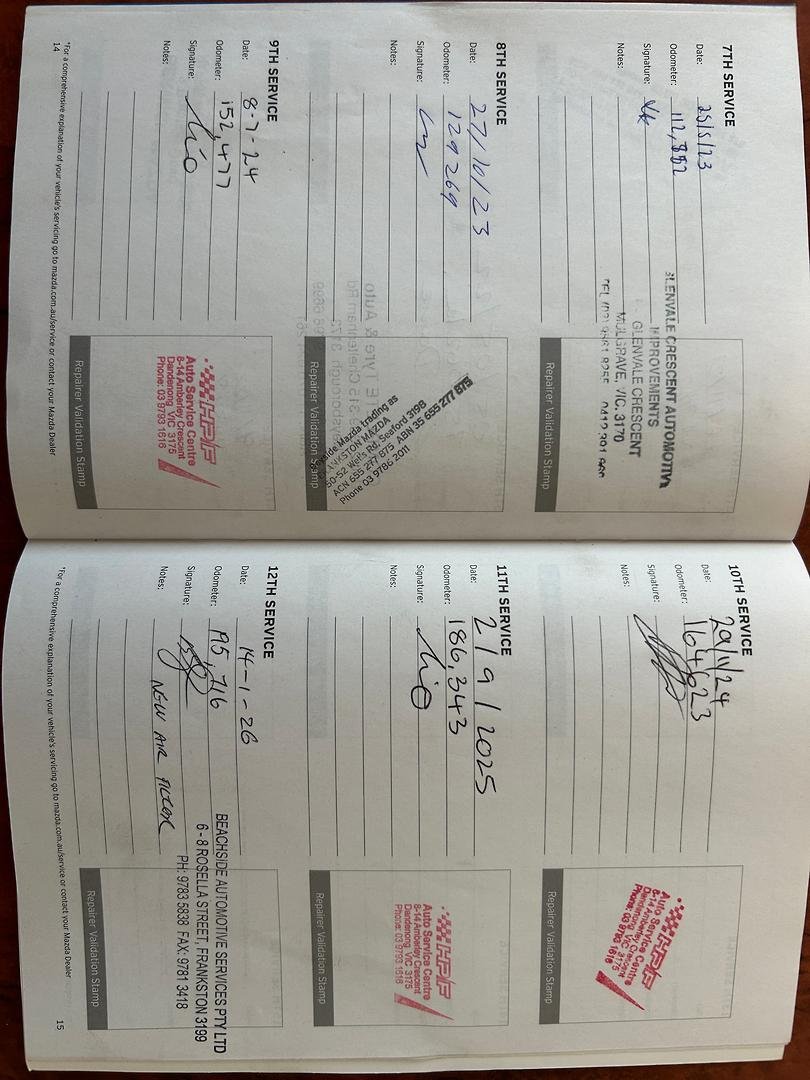 7TH SERVICE
Date: 25/5/23
Odometer: 112,882
Signature:
Notes:
GLENVALE CRESCENT AUTOMOTIV
IMPROVEMENTS
GLENVALE CRESCENT
MULGRAVE, VIC. 3170
Repairer Validation Stamp
8TH SERVICE
Date: 27/10/23
Odometer: 129269
Signature:
Notes:
side Mazda trading as
ANKSTON MAZDA
50-52 Wells Rd, Seaford 3198
ACN 655 277 875 ABN 35 655 277 875
Phone 03 9786 2011
Repairer Validation Stamp
9TH SERVICE
Date: 8-7-24
Odometer: 152,477
Signature:
Notes:
HPF
Auto Service Centre
8-14 Amberley Crescent
Dandenong VIC 3175
Phone: 03 9793 1616
Repairer Validation Stamp
*For a comprehensive explanation of your vehicle's servicing go to mazda.com.au/service or contact your Mazda Dealer
14
10TH SERVICE
Date: 29/11/24
Odometer: 164623
Signature:
Notes:
HPF
Auto Service Centre
8-14 Amberley Crescent
Dandenong VIC 3175
Phone: 03 9793 1616
Repairer Validation Stamp
11TH SERVICE
Date: 2/9/2025
Odometer: 186,343
Signature:
Notes:
HPF
Auto Service Centre
8-14 Amberley Crescent
Dandenong VIC 3175
Phone: 03 9793 1616
Repairer Validation Stamp
12TH SERVICE
Date: 14-1-26
Odometer: 195,716
Signature:
Notes: NEW AIR FILTER
BEACHSIDE AUTOMOTIVE SERVICES PTY LTD
6-8 ROSELLA STREET, FRANKSTON 3199
PH: 9783 5838 FAX: 9781 3418
Repairer Validation Stamp
*For a comprehensive explanation of your vehicle's servicing go to mazda.com.au/service or contact your Mazda Dealer
15